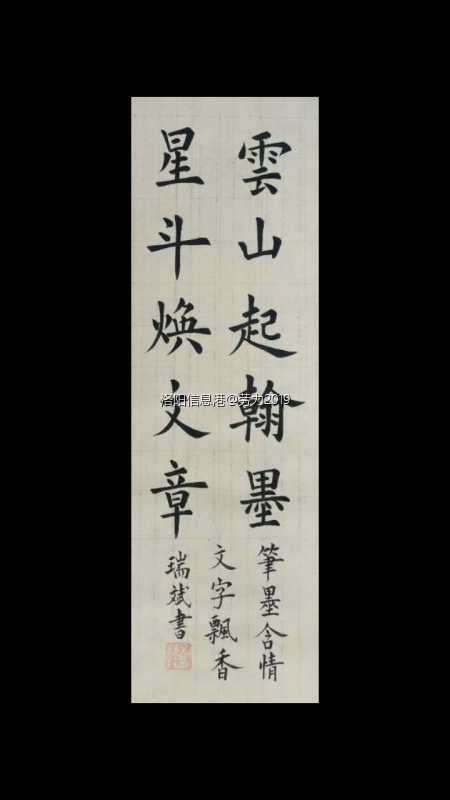 雲山起翰墨
星斗焕文章
筆墨含情
文字飄香
瑞斌書
洛阳信息港@劳力2019